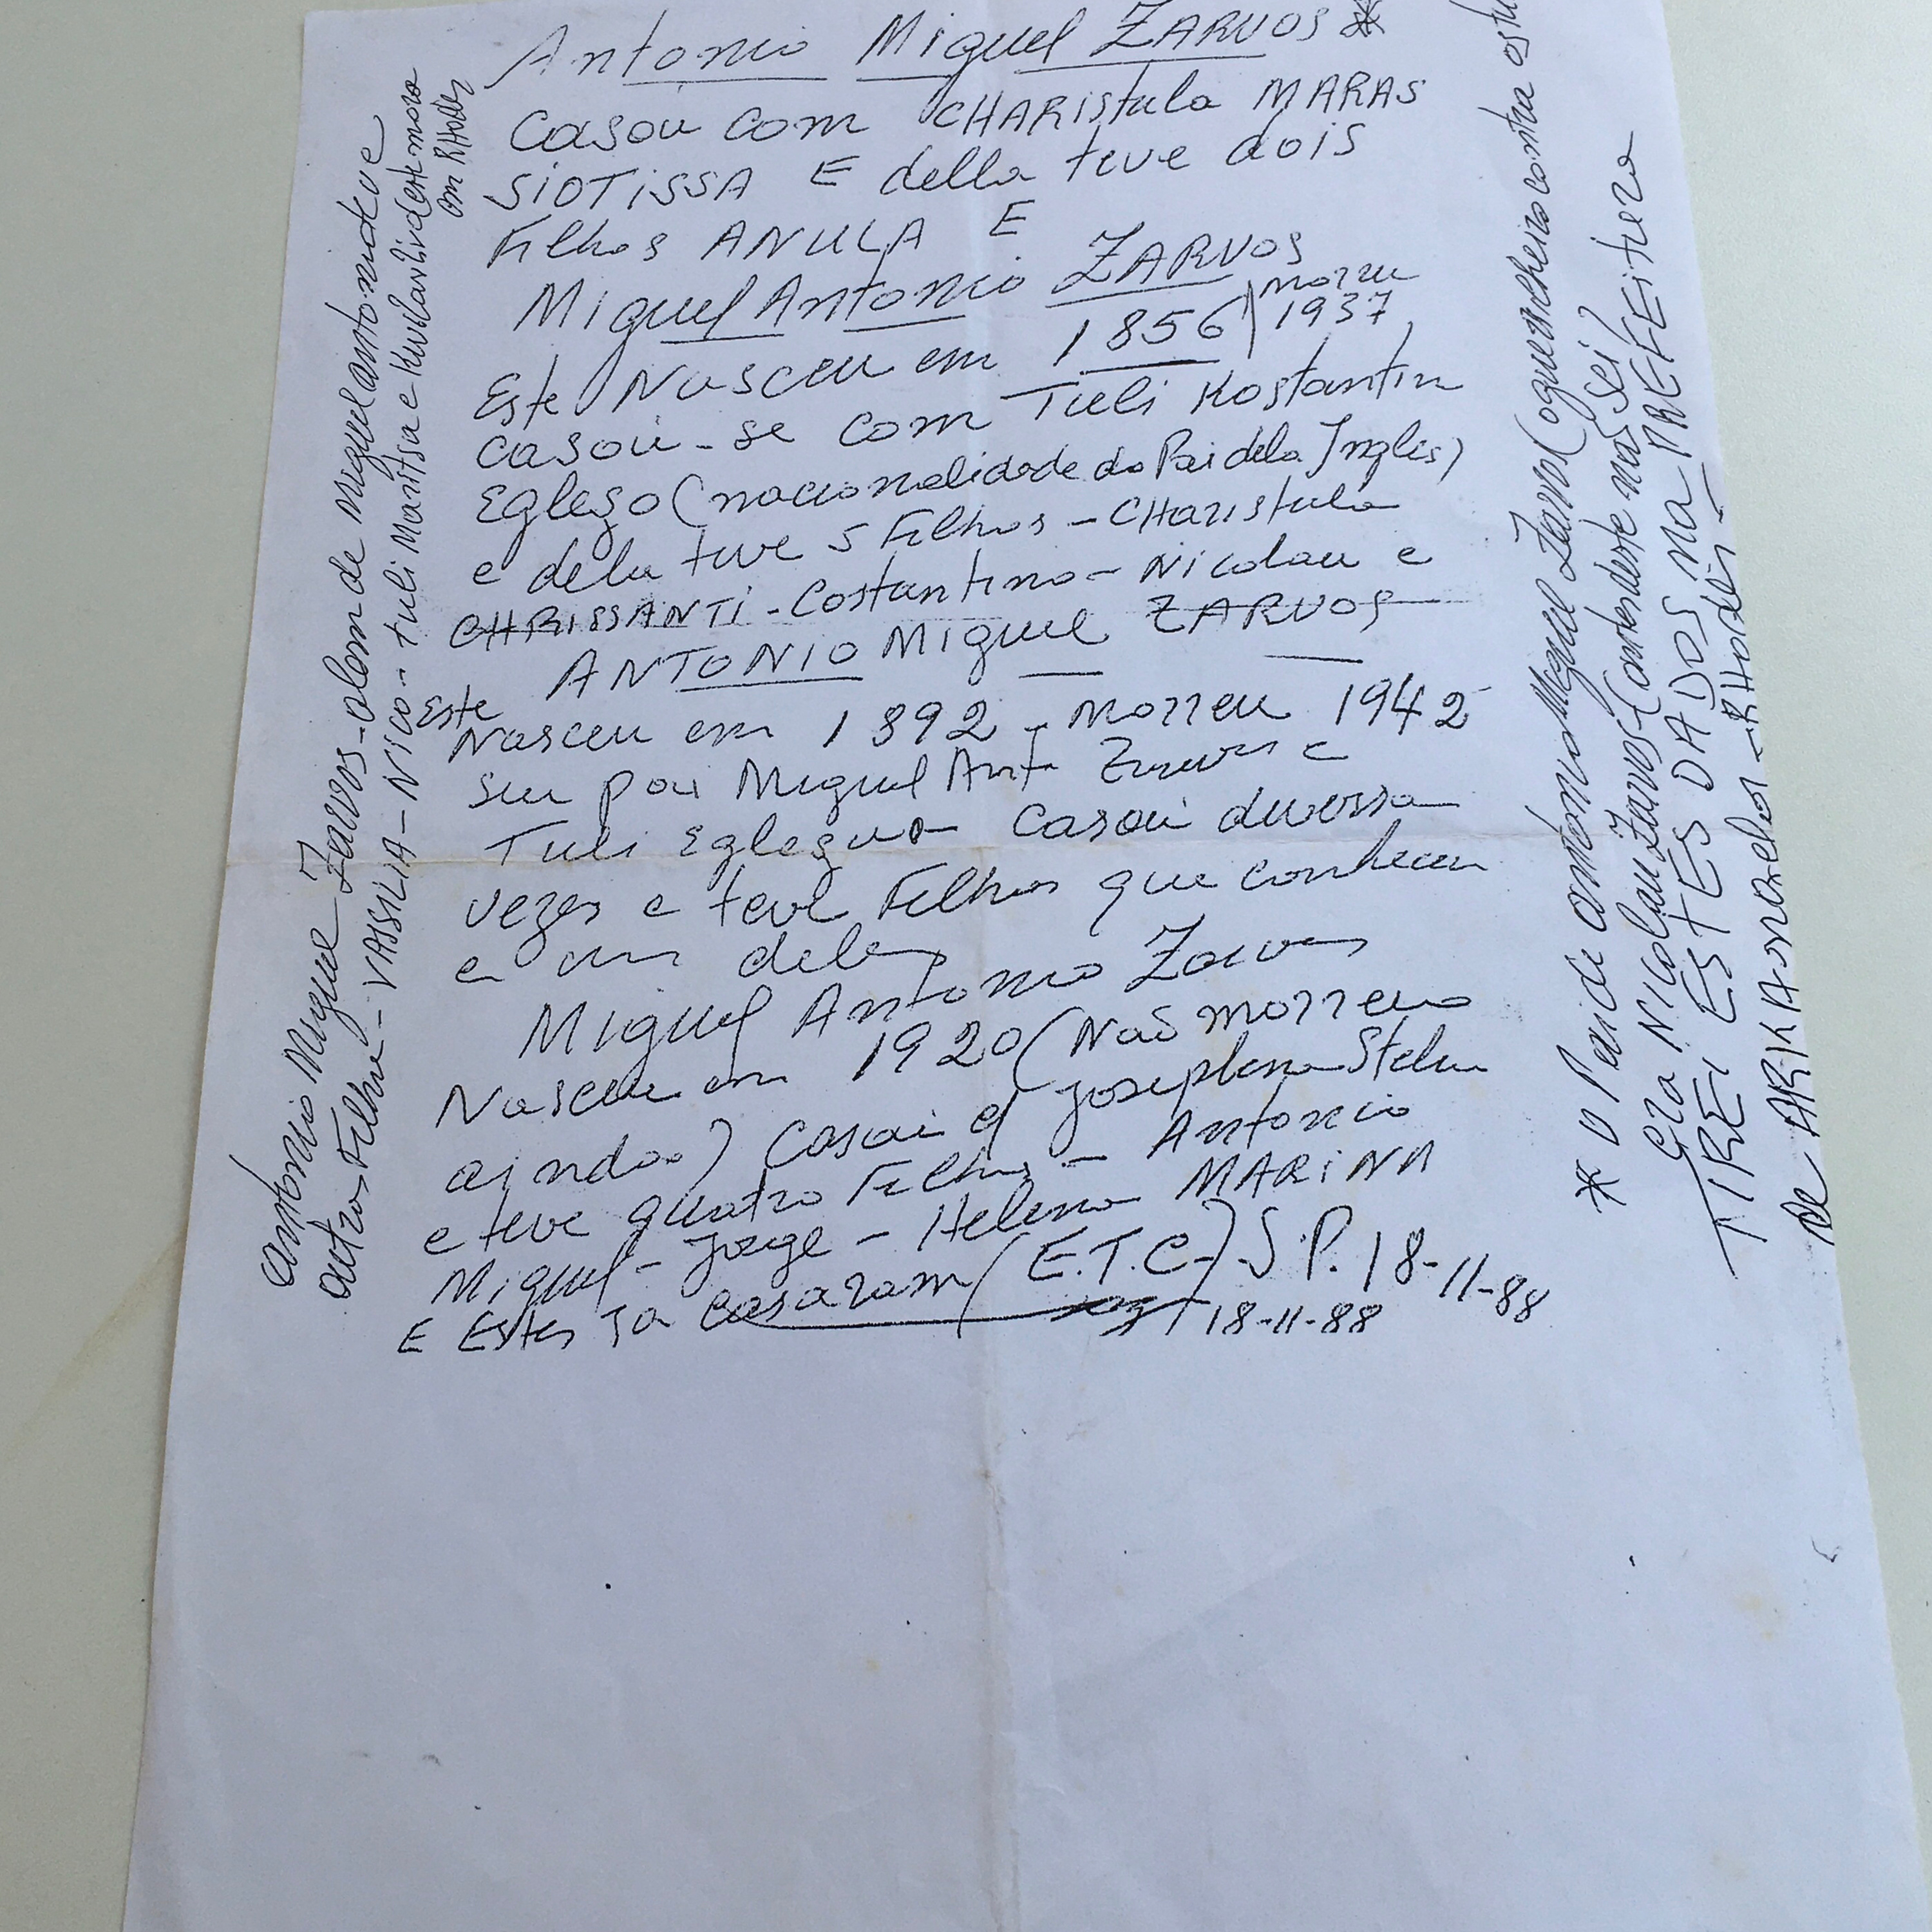 Antonio Miguel ZARVOS *
Casou com CHARIStula MARAS
SIOTISSA E della teve dois
Filhos ANULA E
Miguel Antonio ZARVOS
Este Nasceu em 1856 | morreu 1937
casou-se com Tuli Kostantin
Eglezo (nacionalidade do Pai dela Ingles)
e dela teve 5 Filhos - CHaristula
CHRISSANTI - Costantino - Nicolau e
ANTONIO Miguel ZARVOS
Este
Nasceu em 1892 - morreu 1942
seu pai Miguel Ant Zarvos e
Tuli Eglezo - Casou diversa
vezes e teve Filhos que conhecem
e um deles
Miguel Antonio Zarvos
Nasceu em 1920 (Não morreu
ainda) Casou c/ Josephina Stela
e teve quatro Filhos - Antonio
Miguel - Jorge - Helena MARINA
E Estes Ja Casaram (E.T.C-) S.P. 18-11-88
18-11-88
Antonio Miguel Zarvos - alem de Miguel antonio teve
outros Filhos - VASSILIA - Nico - tuli Maritsa e este mora
em RHodes
* O Pai de antonio Miguel Zarvos (o guerrilheiro contra os
Era Nicolau Zarvos (antes deste não sei)
TIREI ESTES DADOS na PREFEitura
de ARKAngelos - RHodes -